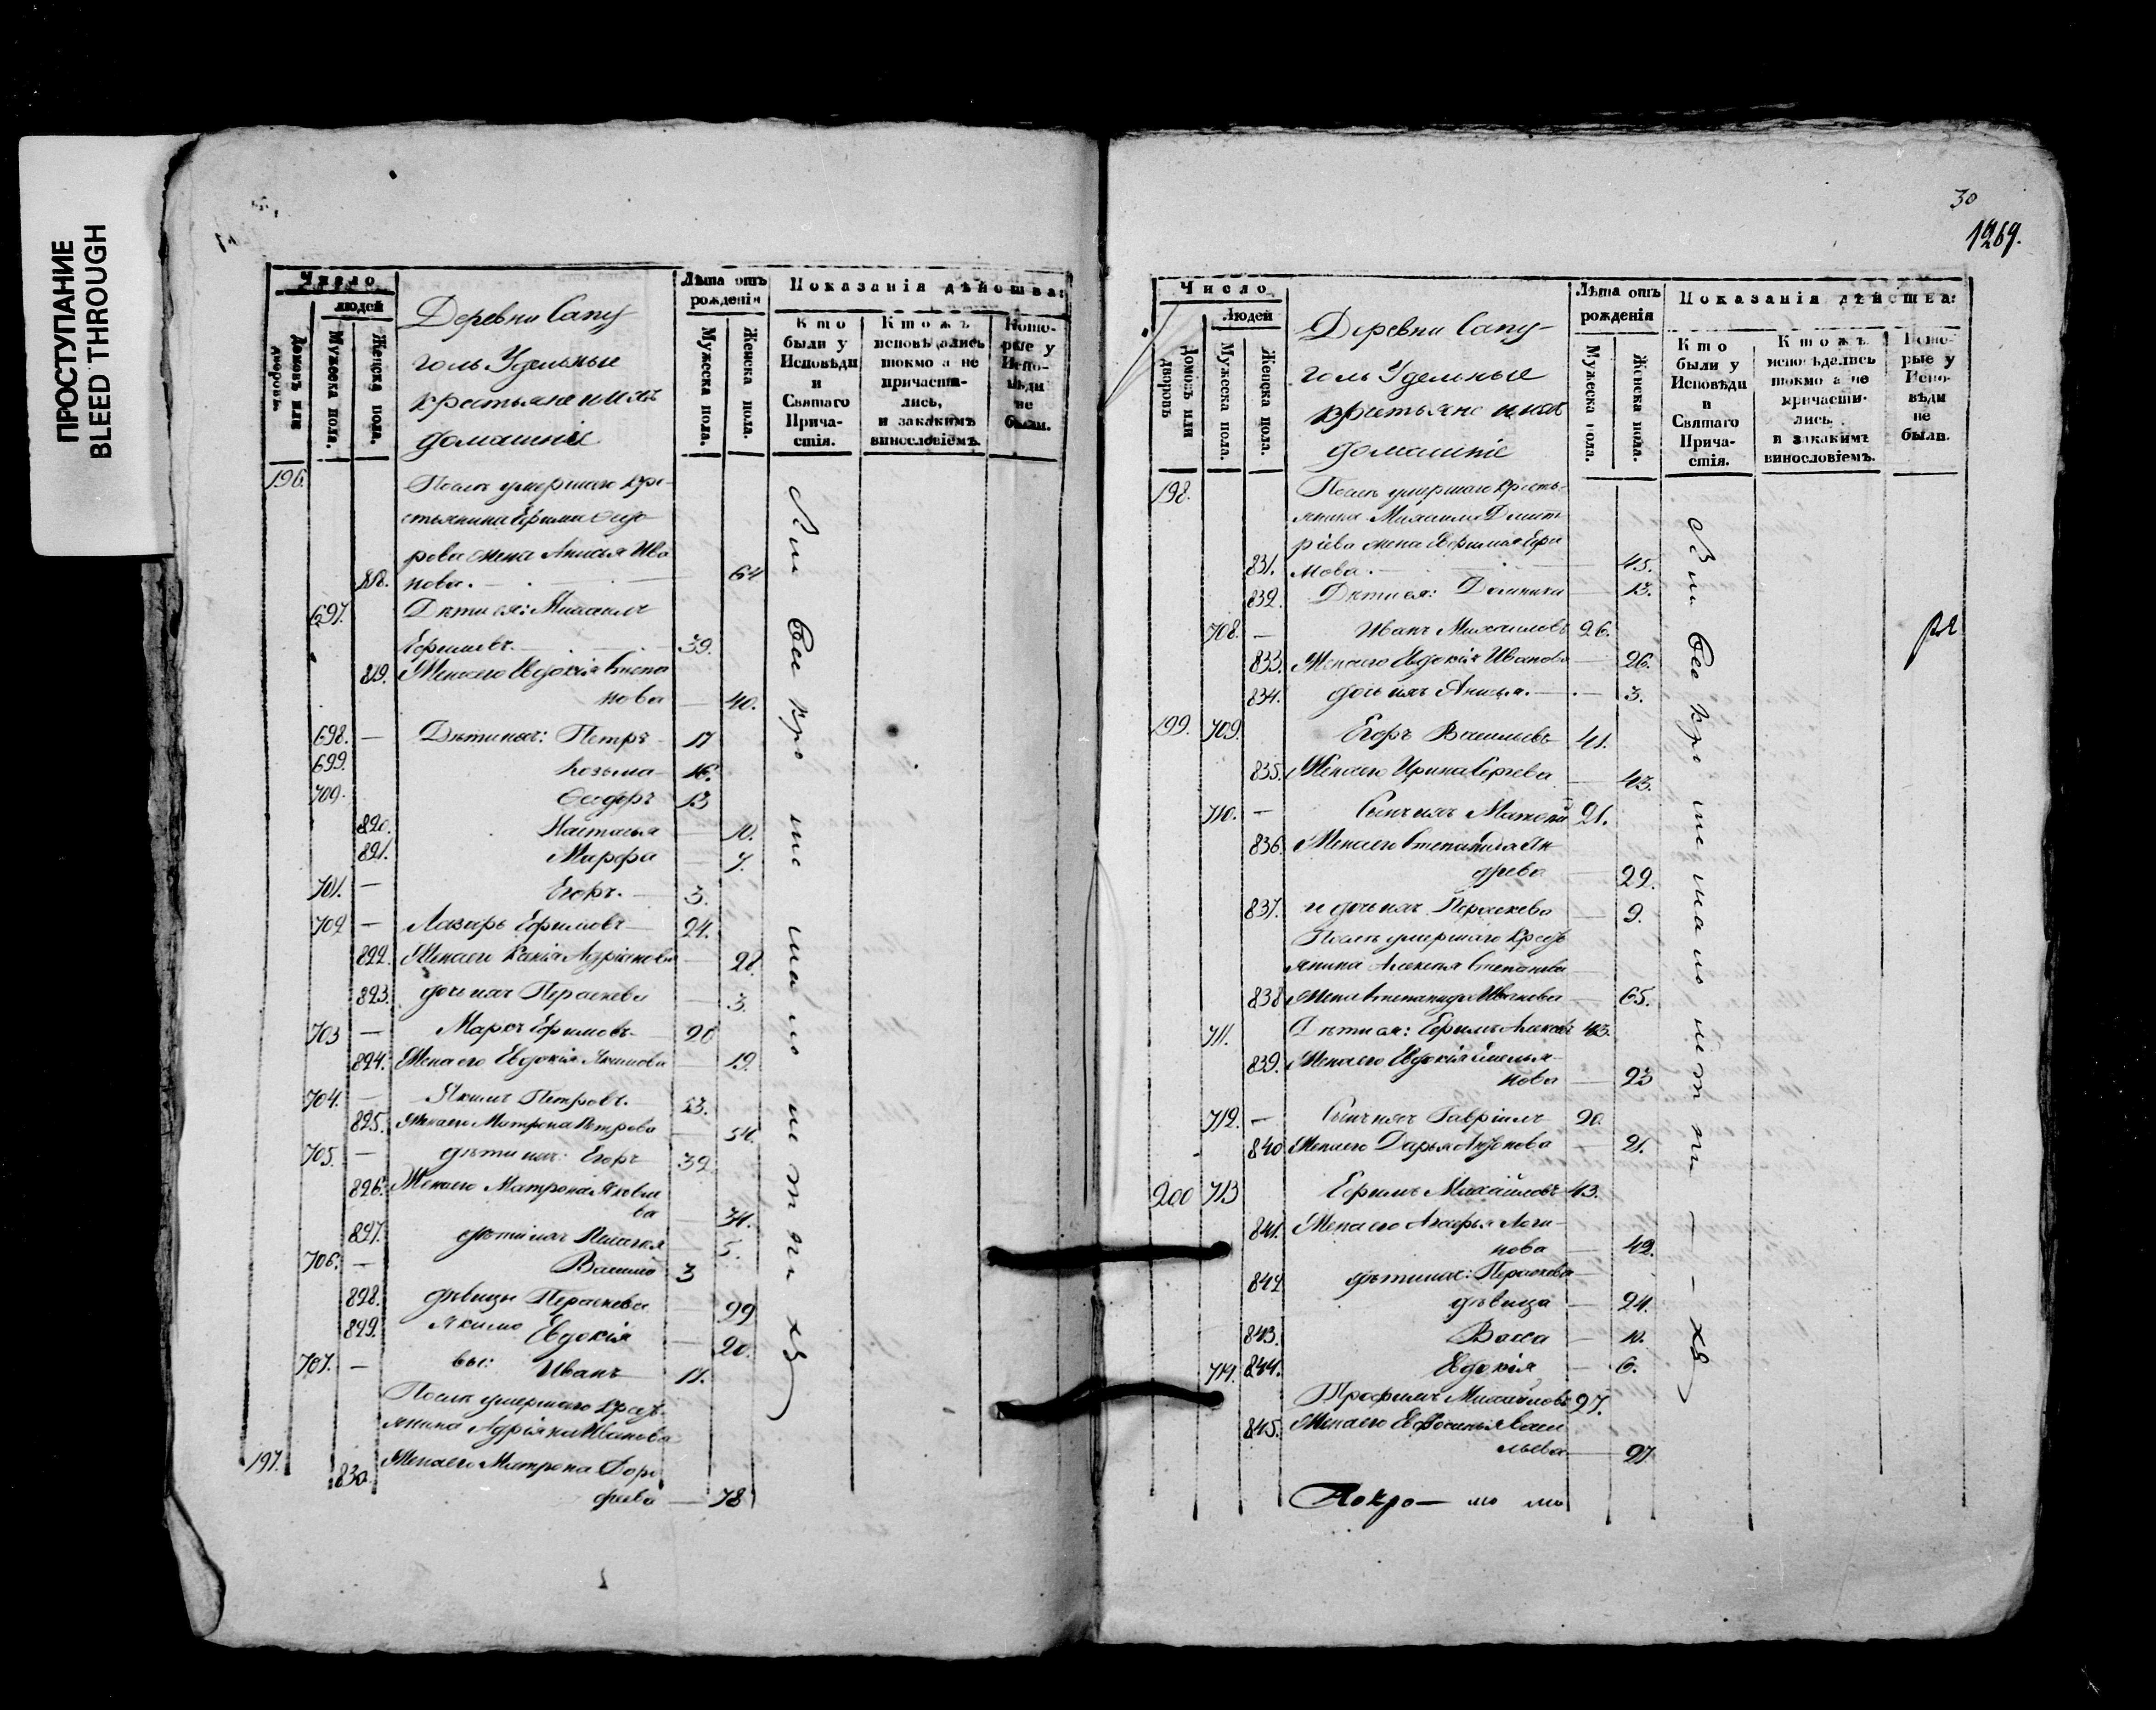 ПРОСТУПАНИЕ
BLEED THROUGH
Число
людей
Домовъ или дворовъ.
Мужеска пола.
Женска пола.
Деревни Сапу-
голь Удельные
крестьяне и ихъ
домашніе
Лѣта отъ рожденія
Мужеска пола.
Женска пола.
Показанія дѣйства:
Кто были у Исповѣди и Святаго Причастія.
Ктожъ исповѣдались токмо а не причастились, и закакимъ винословіемъ.
Которые у Исповѣди не были.
196.
Послѣ умершаго кре-
стьянина Ефима Ѳедо
рова жена Анисья Ива
818. нова. 64
697. Дѣти ея: Михаилъ
Ефимовъ. 39.
819. Жена его Евдокія Степа
нова 40.
698. — Дѣти ихъ: Петръ 17
699. Козьма 16.
700. Ѳедоръ 13
820. Настасья 10.
821. Марфа 7.
701. — Егоръ. 3.
702 — Лазарь Ефимовъ 24.
822. Жена его Адріанова 28.
823. дочь ихъ Параскева 3.
703 — Марко Ефимовъ 20
824. Жена его Евдокія Якимова 19.
704. — Якимъ Петровъ. 53.
825. Жена его Матрона Петрова 54.
705. — дѣти ихъ: Егоръ 32.
826. Жена его Матрона Яковле
ва 34.
827. дѣти ихъ 5.
706. — Василій 3
828. дѣвицы Параскева 22
829. Якимо Евдокія 20.
707. — вы: Иванъ 11.
Послѣ умершаго крест
янина Адріяна Иванова
197. 830. Жена его Матрона Доро
феева — 78
30
1269.
Число
Людей
Домовъ или дворовъ
Мужеска пола.
Женска пола.
Деревни Сапу-
голь Удельные
крестьяне и ихъ
домашніе
Лѣта отъ рожденія
Мужеска пола.
Женска пола.
Показанія дѣйства:
Кто были у Исповѣди и Святаго Причастія.
Ктожъ исповѣдались токмо а не причастились. и закакимъ винословіемъ.
Которые у Исповѣди не были.
198.
Послѣ умершаго кресть-
янина Михаила Дмит
ріева жена Евфимія Ефи
831. мова. 45.
832. Дѣти ея: Домника 13.
708. — Иванъ Михайловъ 26.
833. Жена его Евдокія Иванова 26.
834. дочь ихъ Анисья. 3.
199. 709. Егоръ Васильевъ 41.
835. Жена его Ирина Сергѣева 43.
710. — Сынъ ихъ Матфей 21.
836. Жена его Степанида Ан
дреева 22.
837. и дочь ихъ Параскева 2.
Послѣ умершаго крест
янина Алексѣя Степанова
838 жена Степанида Иванова 65.
711. Дѣти ея: Ефимъ Алексѣевъ 43.
839. Жена его Евдокія Емелья-
нова 23
712. — Сынъ ихъ Гавріилъ 20.
840 Жена его Дарья 21.
200 713 Ефимъ Михайловъ 43.
841. Жена его Агафья Логи-
нова 42.
842 дѣти ихъ: Параскева
дѣвица 24.
843. Васса 10.
714. 844. Евдокія 6.
Трофимъ Михайловъ 27.
845. Жена его Евфросинья Васи
льева 27